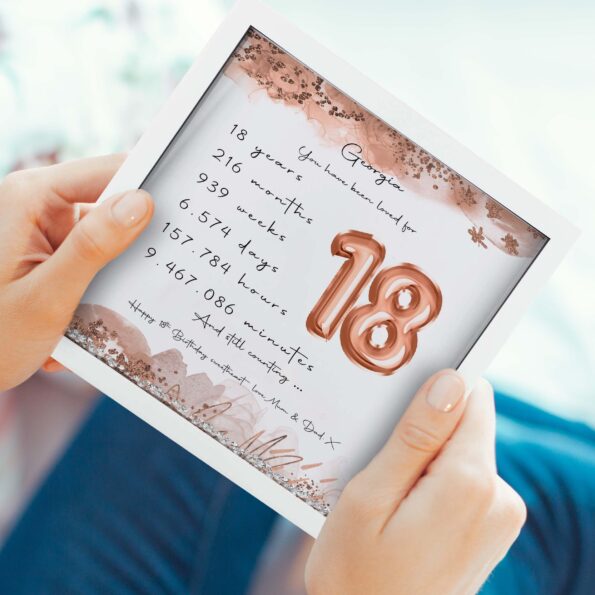 Georgia
You have been loved for
18 years
216 months
939 weeks
6.574 days
157.784 hours
9.467.086 minutes
And still counting ...
18
Happy 18th Birthday sweetheart love Mum & Dad X